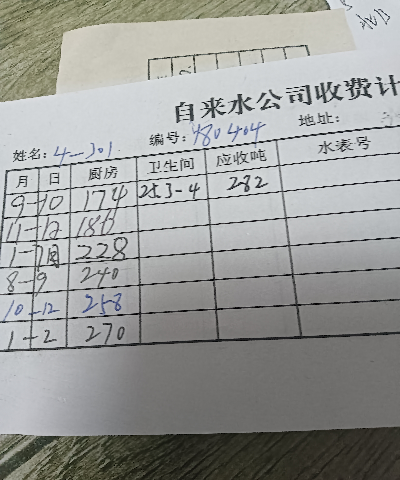 自来水公司收费计
姓名: 4-301 编号: 480404 地址:
月 日 厨房 卫生间 应收吨 水表号
9-10 174 253-4 282
11-12 186
1-7月 228
8-9 240
10-12 258
1-2 270